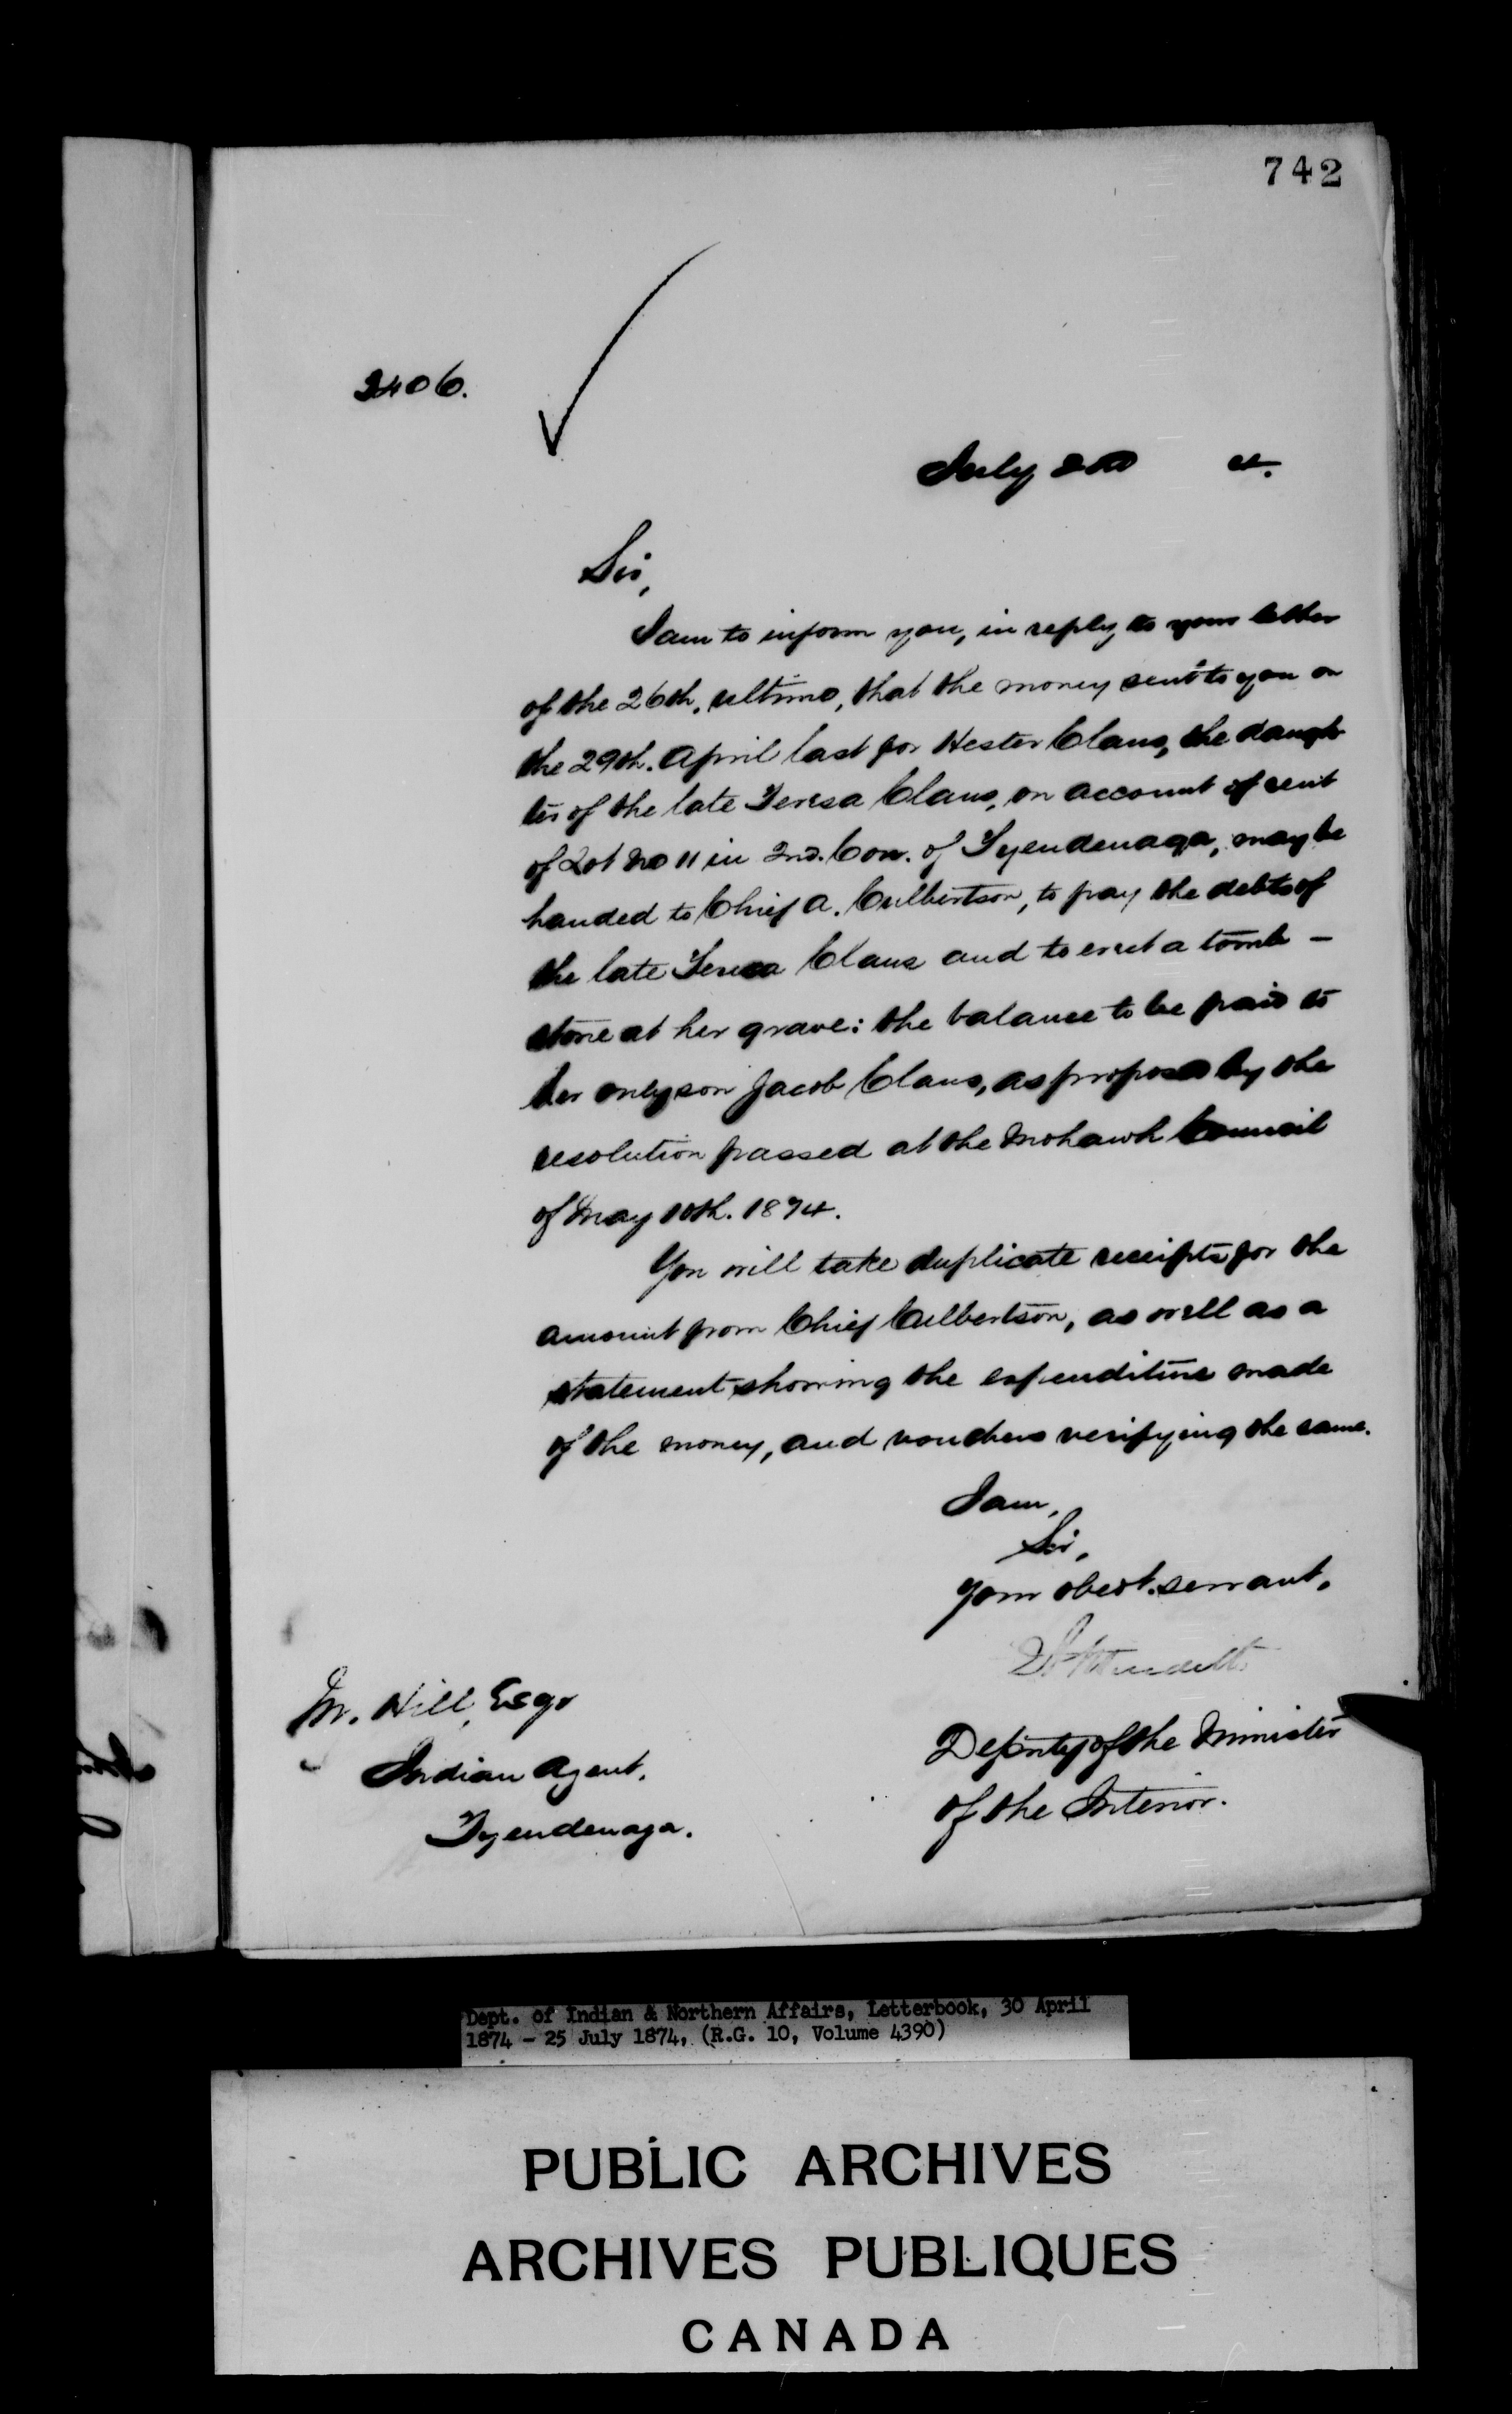 742
2406.
July 2nd 4.
Sir,
I am to inform you, in reply to your letter
of the 26th. ultimo, that the money sent to you on
the 29th. April last for Hester Claus, the daugh-
ter of the late Teresa Claus, on account of rent
of Lot No 11 in 2nd. Con. of Tyendenaga, may be
handed to Chief A. Culbertson, to pay the debts of
the late Teresa Claus and to erect a tomb-
stone at her grave: the balance to be paid to
her only son Jacob Claus, as proposed by the
resolution passed at the Mohawk Council
of May 10th. 1874.
You will take duplicate receipts for the
amount from Chief Culbertson, as well as a
statement showing the expenditure made
of the money, and vouchers verifying the same.
I am,
Sir,
Your obedt. servant,
Deputy of the Minister
of the Interior.
M. Hill, Esqr
Indian Agent,
Tyendenaga.
Dept. of Indian & Northern Affairs, Letterbook, 30 April
1874 - 25 July 1874, (R.G. 10, Volume 4390)
PUBLIC ARCHIVES
ARCHIVES PUBLIQUES
CANADA